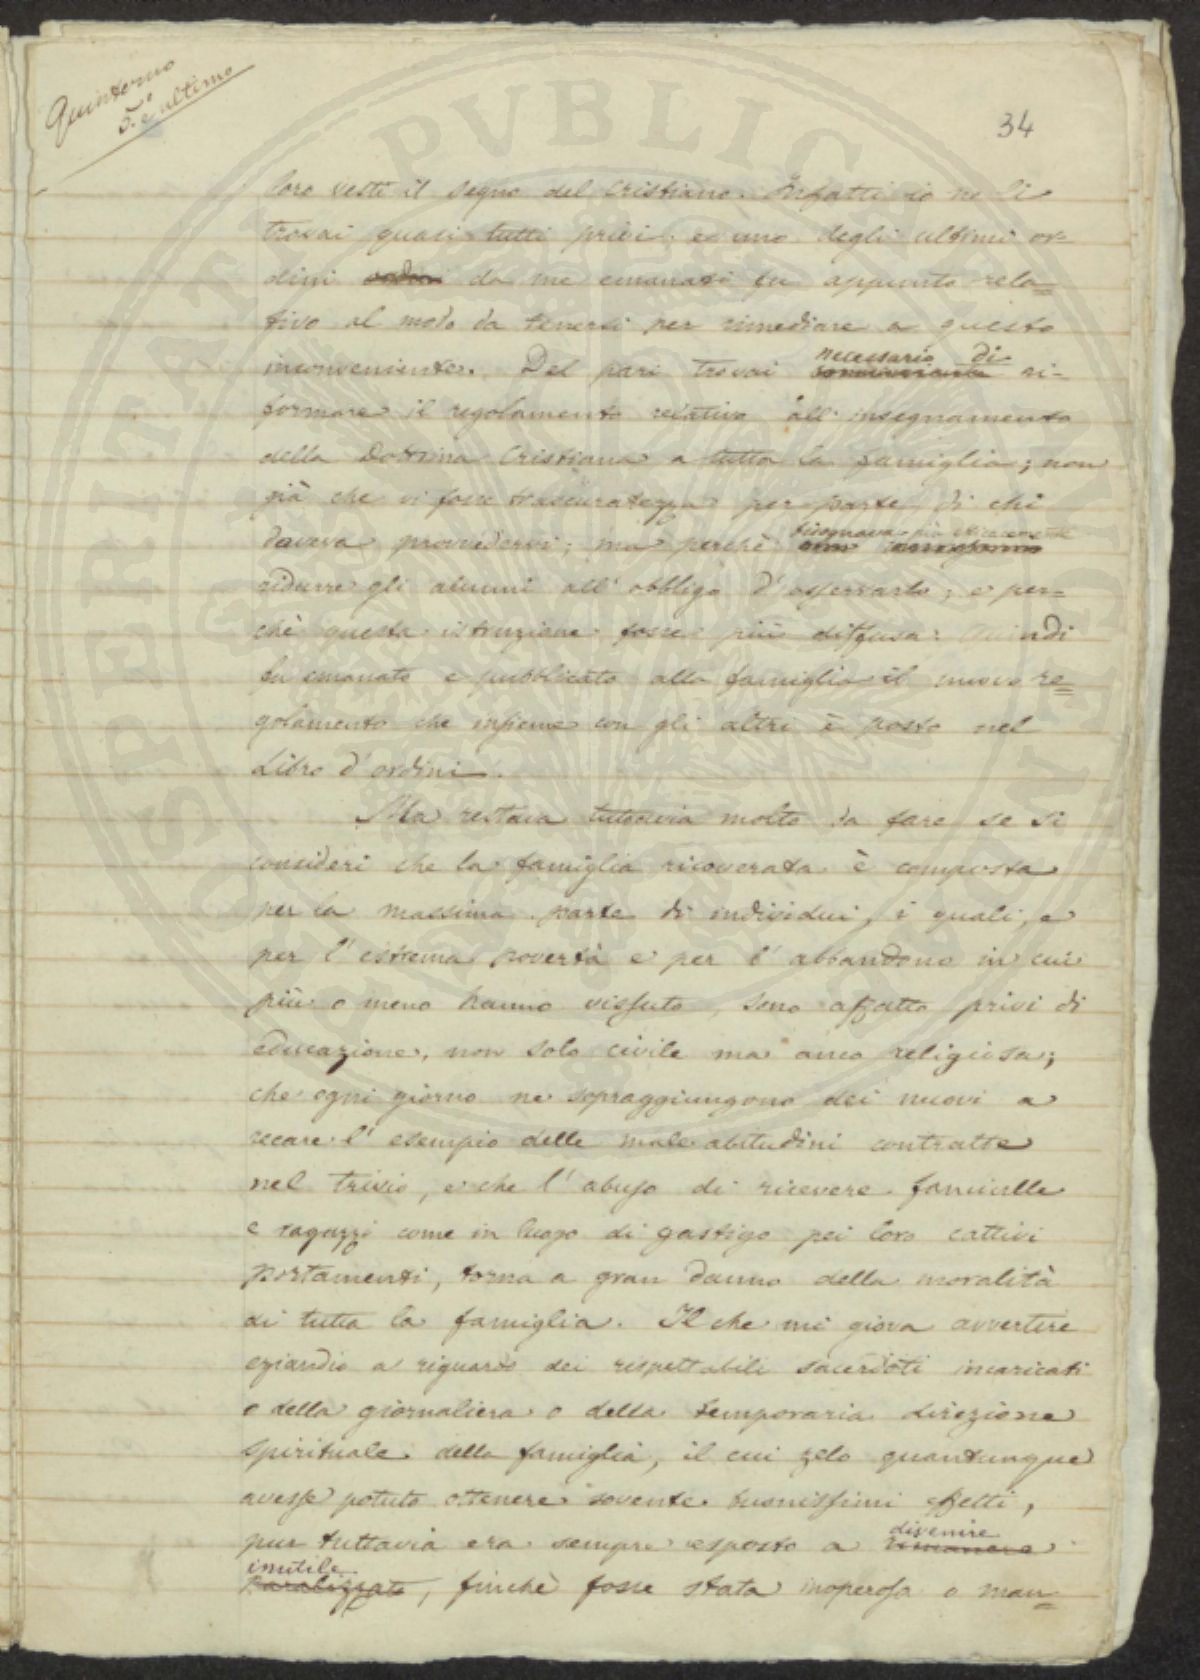 Quinterno
5.° e ultimo
34
loro vesti il segno del Cristiano. Infatti io ne li
trovai quasi tutti privi; e uno degli ultimi or-
dini da me emanati fu appunto rela=
tivo al modo da tenersi per rimediare a questo
necessario di
inconveniente. Del pari trovai ri-
formare il regolamento relativo all'insegnamento
della Dottrina Cristiana a tutta la famiglia; non
già che vi fosse trascuratezza per parte di chi
bisognava più
doveva provvedervi; ma perchè
ridurre gli alunni all'obbligo d'osservarlo; e per-
chè questa istruzione fosse più diffusa. Quindi
fu emanato e pubblicato alla famiglia il nuovo re=
golamento che insieme con gli altri è posto nel
Libro d'ordini.
Ma restava tuttavia molto da fare se si
consideri che la famiglia ricoverata è composta
per la massima parte di individui, i quali, e
per l'estrema povertà e per l'abbandono in cui
più o meno hanno vissuto, sono affatto privi di
educazione, non solo civile ma anco religiosa;
che ogni giorno ne sopraggiungono dei nuovi a
recare l'esempio delle male abitudini contratte
nel trivio, e che l'abuso di ricevere fanciulle
e ragazzi come in luogo di gastigo pei loro cattivi
portamenti, torna a gran danno della moralità
di tutta la famiglia. Il che mi giova avvertire
eziandio a riguardo dei rispettabili sacerdoti incaricati
o della giornaliera o della temporaria direzione
spirituale della famiglia, il cui zelo quantunque
avesse potuto ottenere sovente buonissimi effetti,
divenire
pur tuttavia era sempre esposto a rimanere
inutile
paralizzato, finchè fosse stata inoperosa o man=